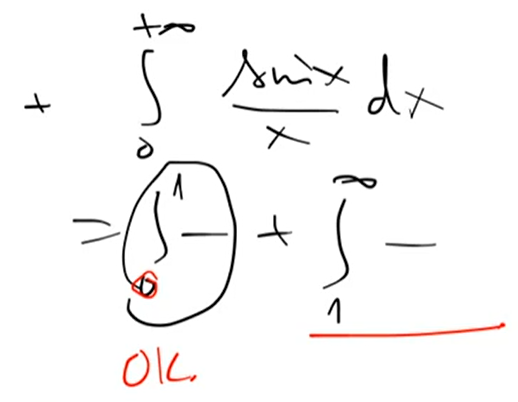 + ∫₀^{+∞} sin x / x dx
= ∫₀¹ — + ∫₁^∞ —
OK.